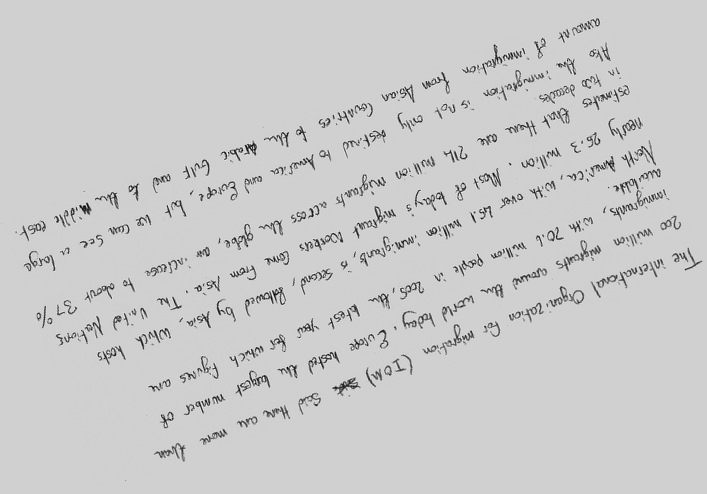 The international Organization for migration (IOM) said there are more than
200 million migrants around the world today. Europe hosted the largest number of
immigrants, with 70.6 million people in 2005, the latest year for which figures are
available.
North America, with over 45.1 million immigrants, is second, followed by Asia, which hosts
nearly 25.3 million. Most of today's migrant workers come from Asia. The United Nations
estimates that there are 214 million migrants across the globe, an increase to about 37%
in two decades.
Also the immigration is not only destined to America and Europe, but we can see a large
amount of immigration from Asian Countries to the Arabic Gulf and to the Middle east.